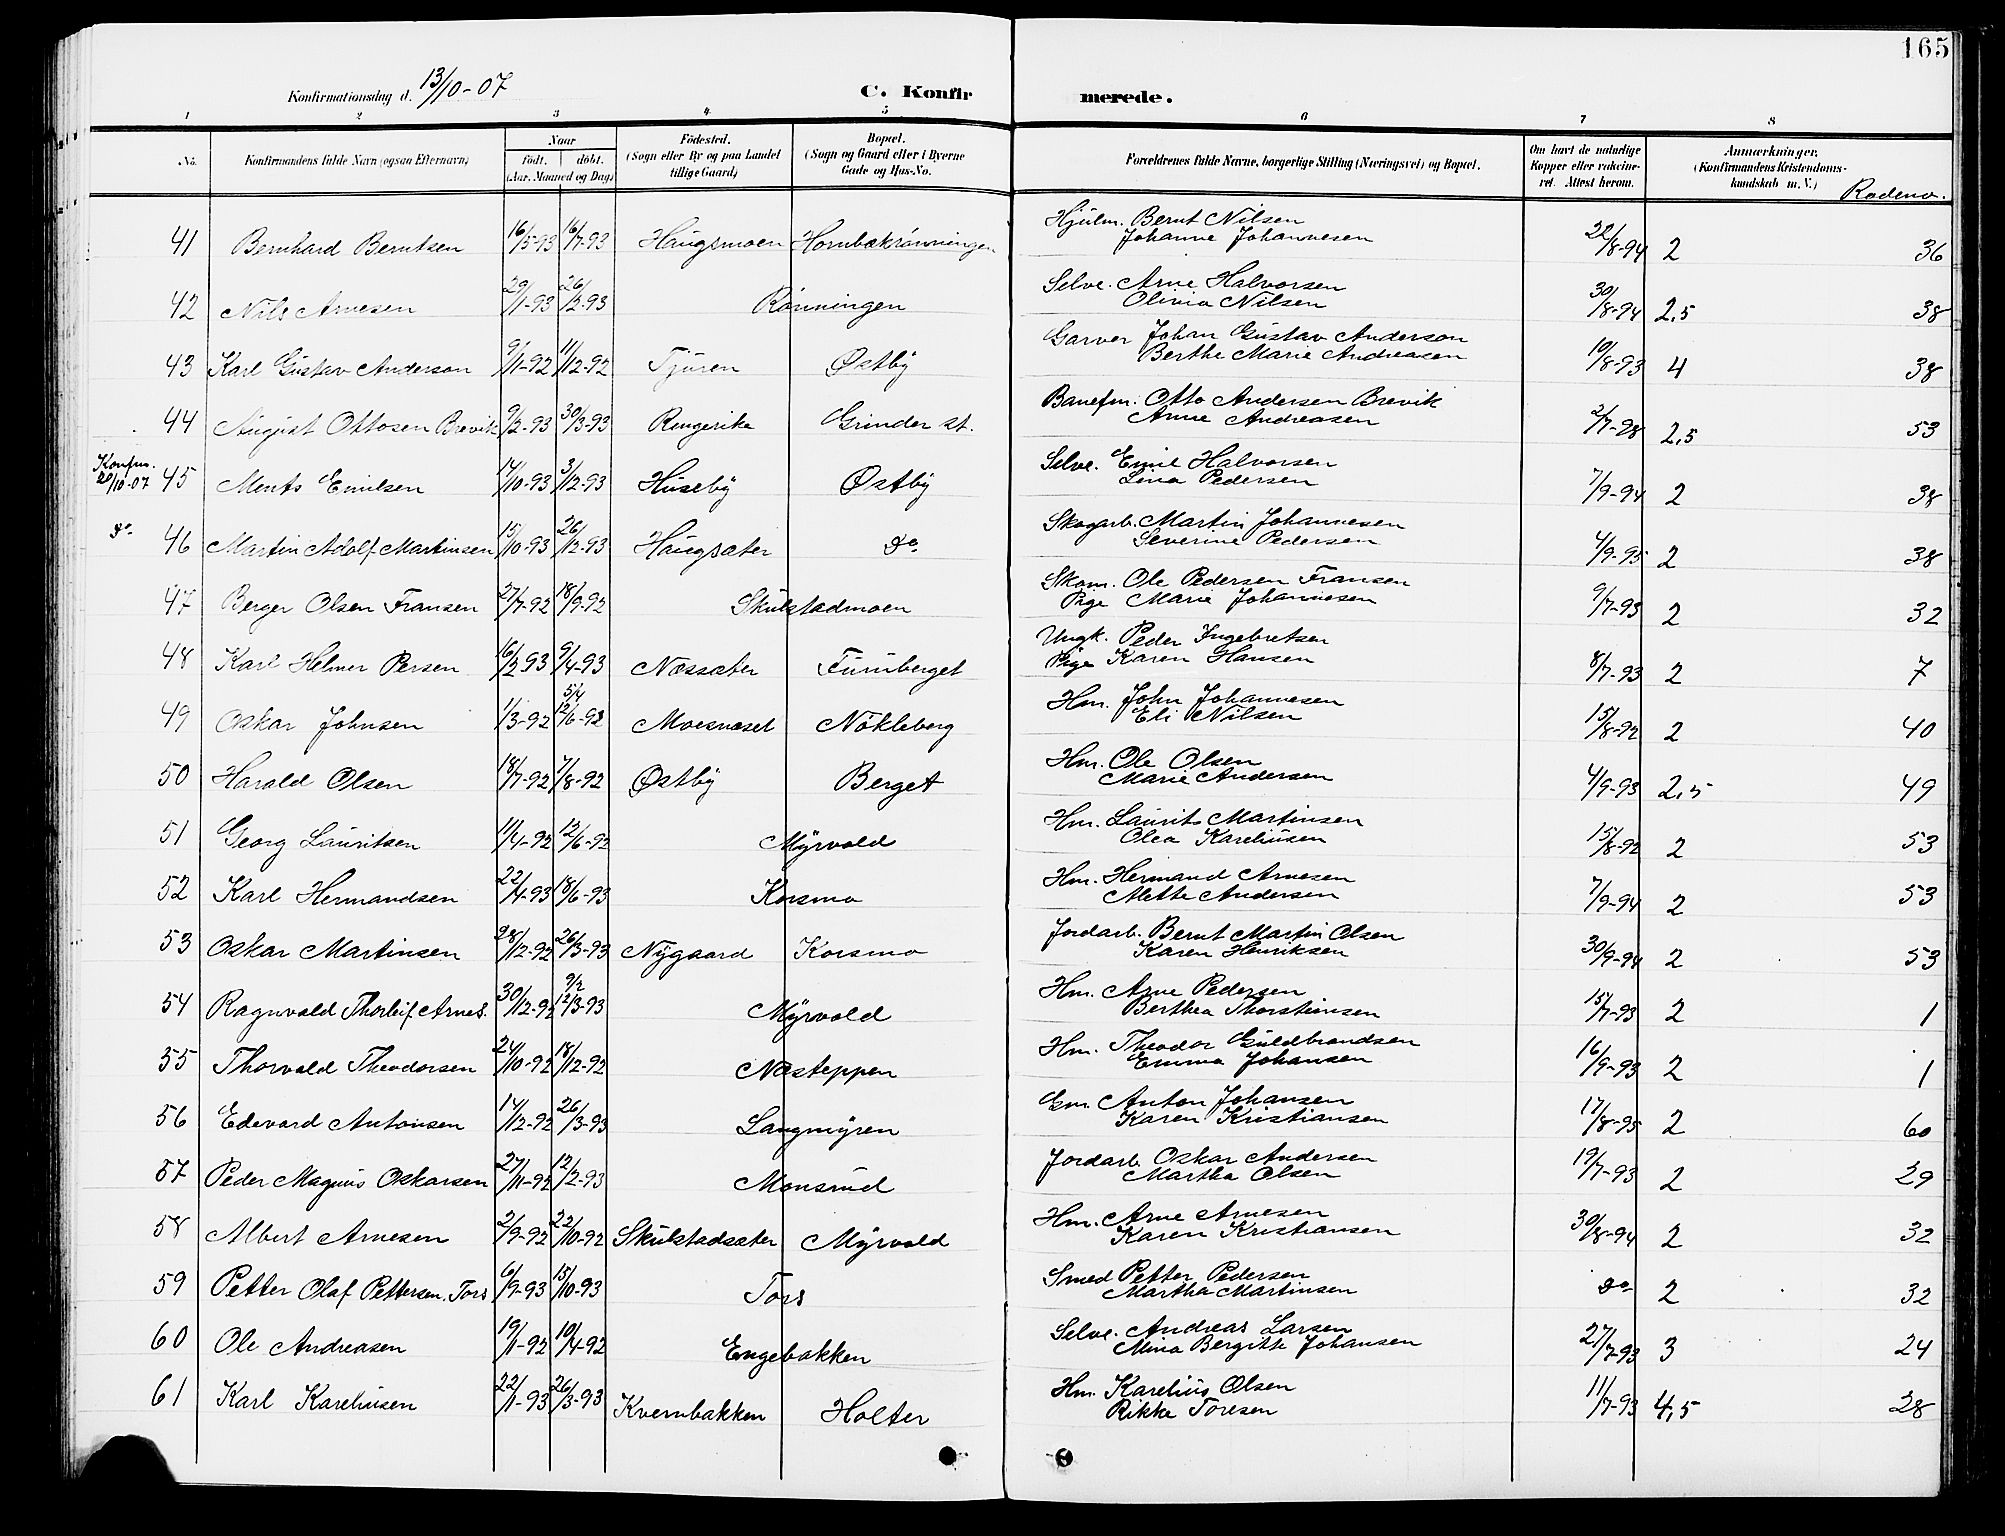 165
Konfirmationsdag d. 13/10-07 C. Konfirmerede.
1 2 3 4 5 6 7 8
No. Konfirmandens fulde Navn (ogsaa Efternavn) Naar født. døbt. (Aar, Maaned og Dag) Fødested. (Sogn eller By og paa Landet tillige Gaard) Bopæl. (Sogn og Gaard eller i Byerne Gade og Hus-No. Forældrenes fulde Navne, borgerlige Stilling (Næringsvei) og Bopæl. Om havt de naturlige Kopper eller vakcineret. Attest herom. Anmærkninger. (Konfirmandens Kristendomskundskab m. V.) Rodeno.
41 Bernhard Berntsen 16/5-93 16/7-93 Haugsmoen Hornbækrønningen Hjulm. Bernt Nilsen
Johanne Johannesen 22/8-94 2 36
42 Nils Arnesen 29/1-93 26/3-93 Rønningen Selve. Arne Halvorsen
Olivia Nilsen 30/8-94 2,5 38
43 Karl Gustav Anderson 9/11-92 11/12-92 Tjuren Østby Garver Johan Gustav Anderson
Berthe Marie Andreasen 19/8-93 4 38
44 August Ottosen Brevik 9/2-93 30/3-93 Ringerike Grinder st. Banefm. Otto Andersen Brevik
Anne Andreasen 2/7-98 2,5 53
Konfm. 20/10-07 45 Ments Emilsen 14/10-93 3/12-93 Huseby Østby Selve. Emil Halvorsen
Lina Pedersen 7/9-94 2 38
do 46 Martin Adolf Martinsen 15/10-93 26/12-93 Haugsæter do Skogarb. Martin Johannesen
Severine Pedersen 4/9-95 2 38
47 Berger Olsen Fransen 27/7-92 18/9-92 Skulstadmoen Skom. Ole Pedersen Fransen
Pige Marie Johannesen 9/7-93 2 32
48 Karl Helmer Persen 16/2-93 9/4-93 Næssæter Furuberget Ungk. Peder Ingebretsen
Pige Karen Hansen 8/7-93 2 7
49 Oskar Johnsen 1/3-92 5/4 12/6-92 Moesnæset Nökleberg Hm. John Johannesen
Eli Nilsen 15/8-92 2 40
50 Harald Olsen 18/7-92 7/8-92 Østby Berget Hm. Ole Olsen
Marie Andersen 4/9-93 2,5 49
51 Georg Lauritsen 11/4-92 12/6-92 Myrvold Hm. Laurits Martinsen
Olea Kareliusen 15/8-92 2 53
52 Karl Hermandsen 22/4-93 18/6-93 Korsmo Hm. Hermand Arnesen
Mette Andersen 7/9-94 2 53
53 Oskar Martinsen 28/12-92 26/3-93 Nygaard Korsmo Jordarb. Bernt Martin Olsen
Karen Henriksen 30/9-94 2 53
54 Ragnvald Thorleif Arnes. 30/12-92 9/2 12/3-93 Myrvold Hm. Arne Pedersen
Berthea Thorsteinsen 15/7-93 2 1
55 Thorvald Theodorsen 24/10-92 18/12-92 Næsteppen Hm. Theodor Guldbrandsen
Emma Johansen 16/9-93 2 1
56 Edevard Antonsen 14/12-92 26/3-93 Langmyren Gm. Anton Johansen
Karen Kristiansen 17/8-95 2 60
57 Peder Magnus Oskarsen 27/11-92 12/2-93 Monsrud Jordarb. Oskar Andersen
Martha Olsen 19/7-93 2 29
58 Albert Arnesen 2/9-92 22/10-92 Skulstadsæter Myrvold Hm. Arne Arnesen
Karen Kristiansen 30/8-94 2 32
59 Petter Olaf Pettersen Tors 6/9-93 15/10-93 Tors Smed Petter Pedersen
Martha Martinsen do 2 32
60 Ole Andreasen 19/1-92 10/4-92 Engebakken Selve. Andreas Larsen
Mina Bergitte Johansen 27/7-93 3 24
61 Karl Kareliusen 22/1-93 26/3-93 Kvernbakken Holter Hm. Karelius Olsen
Rikke Toresen 11/7-93 4,5 28